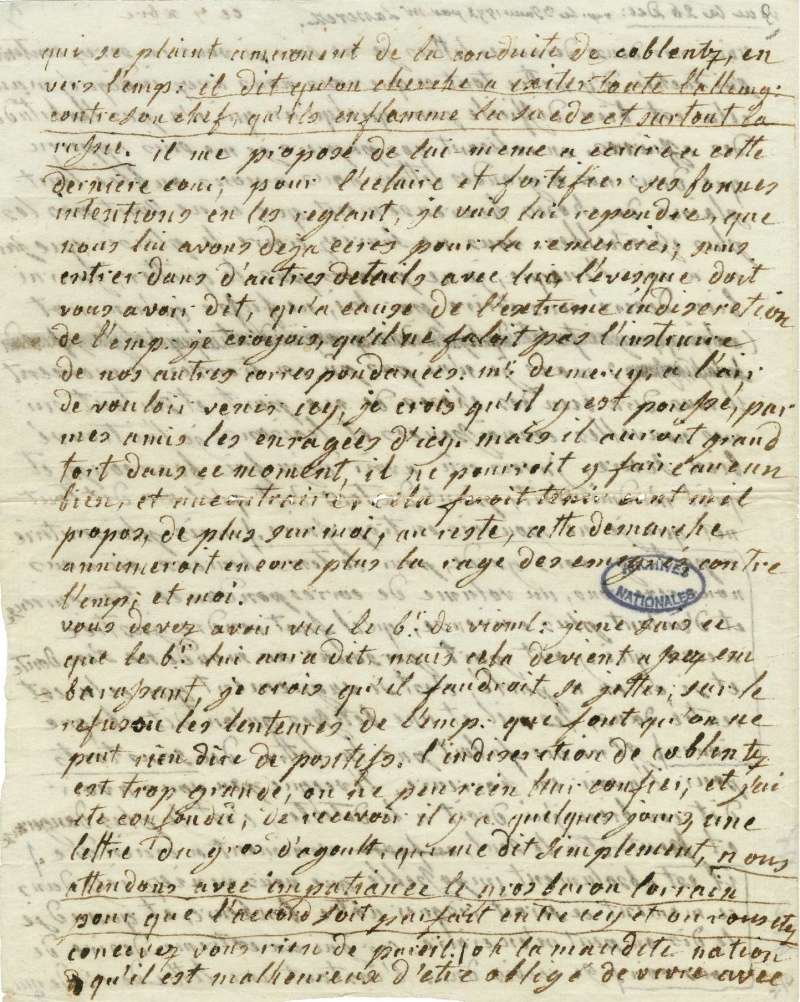 qui se plaint amerement de la conduite de coblentz, en
vers l'emp: il dit qu'on cherche a exiter toute l'allemg:
contre son chef, qu'ils enflamme la suede et surtout la
rassie. il me propose de lui meme a ecrire a cette
derniere cour; pour l'eclaire et fortifier ses bonnes
intentions en les reglant, je vais lui repondre, que
nous lui avons deja ecris pour la remercier; sans
entrer dans d'autres details avec lui, l'évesque doit
vous avoir dit, qu'a cause de l'extreme indiscretion
de l'emp: je croyois, qu'il ne faloit pas l'instruire
de nos autres correspondances. mr. de mercy, a l'air
de vouloir venir icy, je crois qu'il y est poussé, par
mes amis les enragées d'icy. mais il auroit grand
tort dans ce moment, il ne pourroit y faire aucun
bien, et au contraire, cela feroit tenir cent mil
propos, de plus sur moi, au reste, cette demarche
annimeroit encore plus la rage des emigrés contre
l'emp: et moi.
vous devez avoir vue le b: de vioml: je ne sais ce
que le b: lui aura dit, mais cela devient assez em
barassant, je crois qu'il faudroit se jetter, sur le
refus ou les lenteures de l'emp: que font qu'on ne
peut rien dire de positifs. l'indiscretion de coblentz
est trop grande, on ne peu rien leur confier, et j'ai
ete confondû, de recevoir il y a quelques jours, une
lettre du gros d'agoult, qui me dit simplement, nous
attendons avec impatiance le gros baron lorrain
pour que l'accord soit parfait entre icy et ou vous ety
concevez vous rien de pareil! oh la maudite nation
qu'il est malheureux d'etre obligé de vivre avec
ARCHIVES
NATIONALES